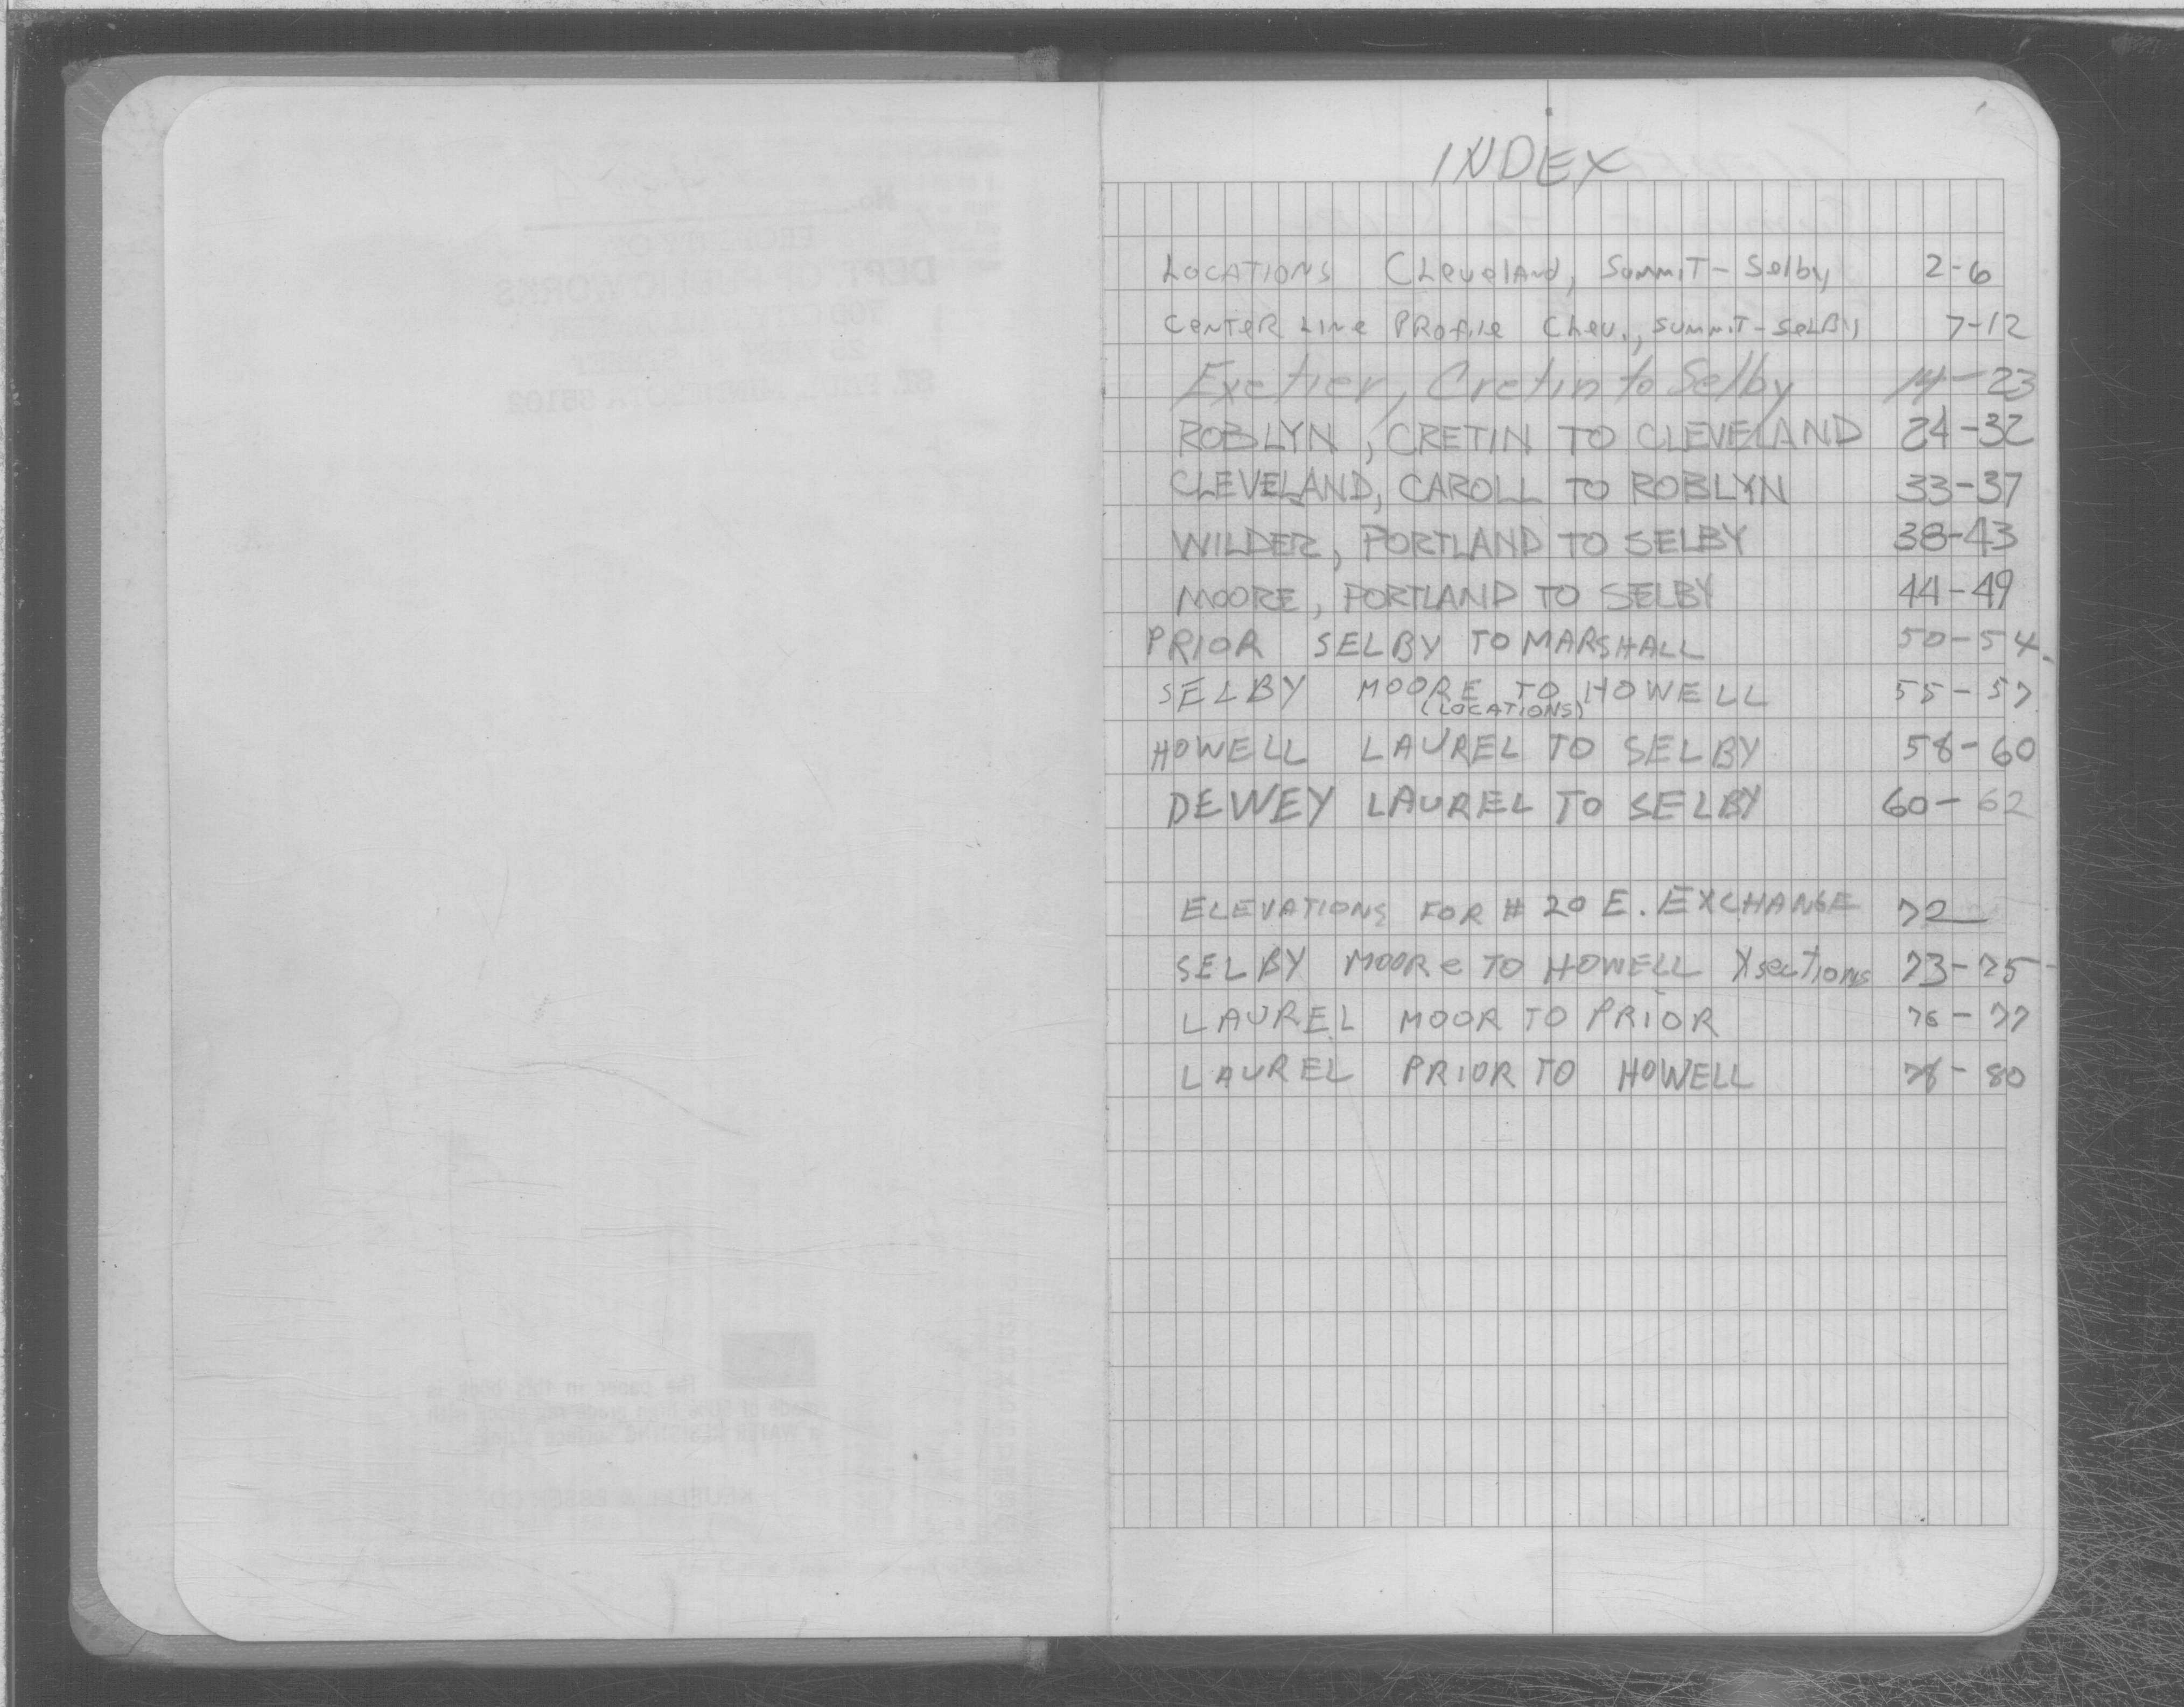 INDEX
LOCATIONS Cleveland, Summit - Selby 2-6
CENTER LINE PROFILE Clev., SUMMIT - SELBY 7-12
Exetier, Cretin to Selby 14-23
ROBLYN, CRETIN TO CLEVELAND 24-32
CLEVELAND, CAROLL TO ROBLYN 33-37
WILDER, PORTLAND TO SELBY 38-43
MOORE, PORTLAND TO SELBY 44-49
PRIOR SELBY TO MARSHALL 50-54
SELBY MOORE TO HOWELL 55-57
(LOCATIONS)
HOWELL LAUREL TO SELBY 58-60
DEWEY LAUREL TO SELBY 60-62
ELEVATIONS FOR # 20 E. EXCHANGE 72
SELBY MOORE TO HOWELL Xsections 73-75
LAUREL MOOR TO PRIOR 76-77
LAUREL PRIOR TO HOWELL 78-80